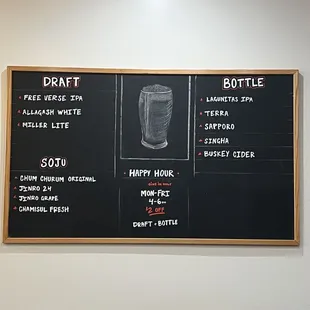 DRAFT
FREE VERSE IPA
ALLAGASH WHITE
MILLER LITE
SOJU
CHUM CHURUM ORIGINAL
JINRO 24
JINRO GRAPE
CHAMISUL FRESH
HAPPY HOUR
MON-FRI
4-6
$2 OFF
DRAFT + BOTTLE
BOTTLE
LAGUNITAS IPA
TERRA
SAPPORO
SINGHA
BUSKEY CIDER